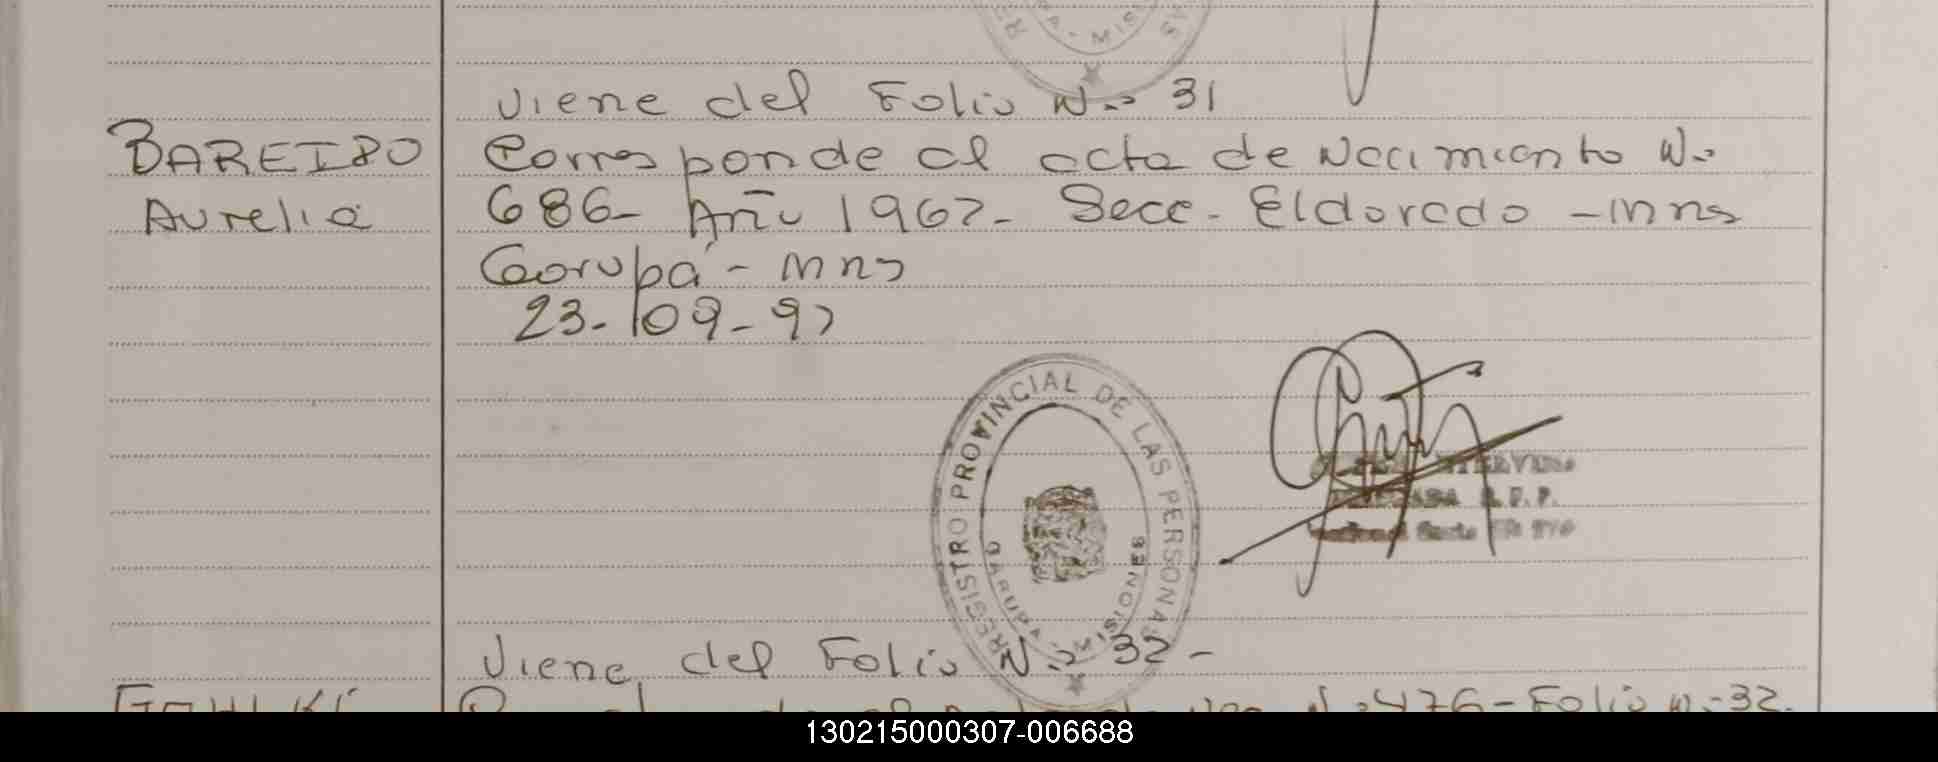 Viene del Folio N.º 31
BAREIRO
Aurelia
Corresponde al acta de Nacimiento N.º
686- Año 1967- Secc. Eldorado -Mns
Garupá - Mns
23-09-97
REGISTRO PROVINCIAL DE LAS PERSONAS
GARUPA - MISIONES
Viene del Folio N.º 32-
N.º 476-Folio N.º 32.
130215000307-006688